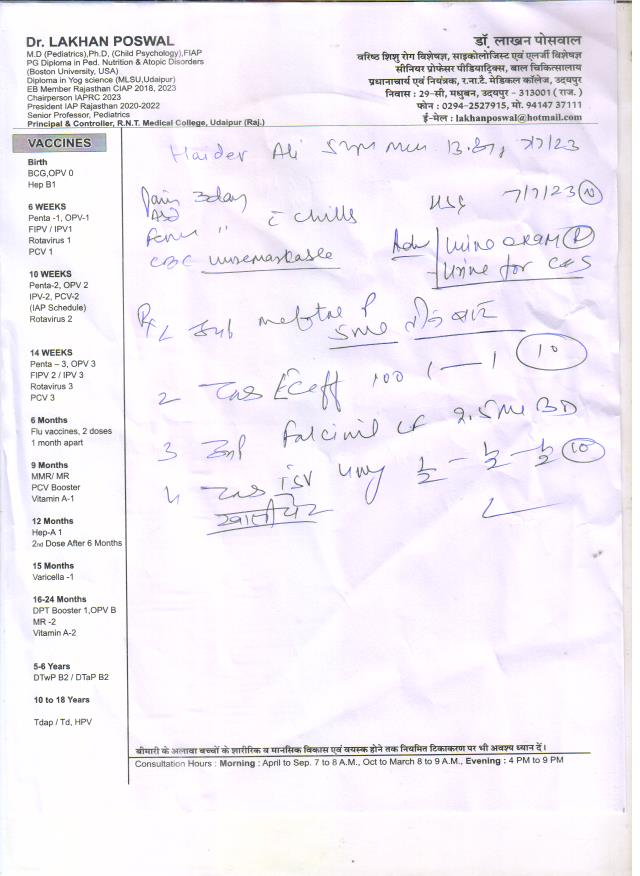 Dr. LAKHAN POSWAL
M.D (Pediatrics),Ph.D, (Child Psychology),FIAP
PG Diploma in Ped. Nutrition & Atopic Disorders
(Boston University, USA)
Diploma in Yog science (MLSU,Udaipur)
EB Member Rajasthan CIAP 2018, 2023
Chairperson IAPRC 2023
President IAP Rajasthan 2020-2022
Senior Professor, Pediatrics
Principal & Controller, R.N.T. Medical College, Udaipur (Raj.)
डॉ. लाखन पोसवाल
वरिष्ठ शिशु रोग विशेषज्ञ, साइकोलोजिस्ट एवं एलर्जी विशेषज्ञ
सीनियर प्रोफेसर पीडियाट्रिक्स, बाल चिकित्सालाय
प्रधानाचार्य एवं नियंत्रक, र.ना.टै. मेडिकल कॉलेज, उदयपुर
निवास : 29-सी, मधुबन, उदयपुर - 313001 ( राज. )
फोन : 0294-2527915, मो. 94147 37111
ई-मेल : lakhanposwal@hotmail.com
VACCINES
Birth
BCG,OPV 0
Hep B1
6 WEEKS
Penta -1, OPV-1
FIPV / IPV1
Rotavirus 1
PCV 1
10 WEEKS
Penta-2, OPV 2
IPV-2, PCV-2
(IAP Schedule)
Rotavirus 2
14 WEEKS
Penta – 3, OPV 3
FIPV 2 / IPV 3
Rotavirus 3
PCV 3
6 Months
Flu vaccines, 2 doses
1 month apart
9 Months
MMR/ MR
PCV Booster
Vitamin A-1
12 Months
Hep-A 1
2nd Dose After 6 Months
15 Months
Varicella -1
16-24 Months
DPT Booster 1,OPV B
MR -2
Vitamin A-2
5-6 Years
DTwP B2 / DTaP B2
10 to 18 Years
Tdap / Td, HPV
Haider Ali 7/7/23
Pain 3day
USG 7/7/23 N
Fever " c chills
CBC unremarkable
Adv Urine exam
Urine for C&S
Rx 1 meftal P
5ml
2 100 1 — 1 10
3 2.5ml BD
4 ½ - ½ - ½ 10
खाली पेट
बीमारी के अलावा बच्चों के शारीरिक व मानसिक विकास एवं वयस्क होने तक नियमित टिकाकरण पर भी अवश्य ध्यान दें।
Consultation Hours : Morning : April to Sep. 7 to 8 A.M., Oct to March 8 to 9 A.M., Evening : 4 PM to 9 PM